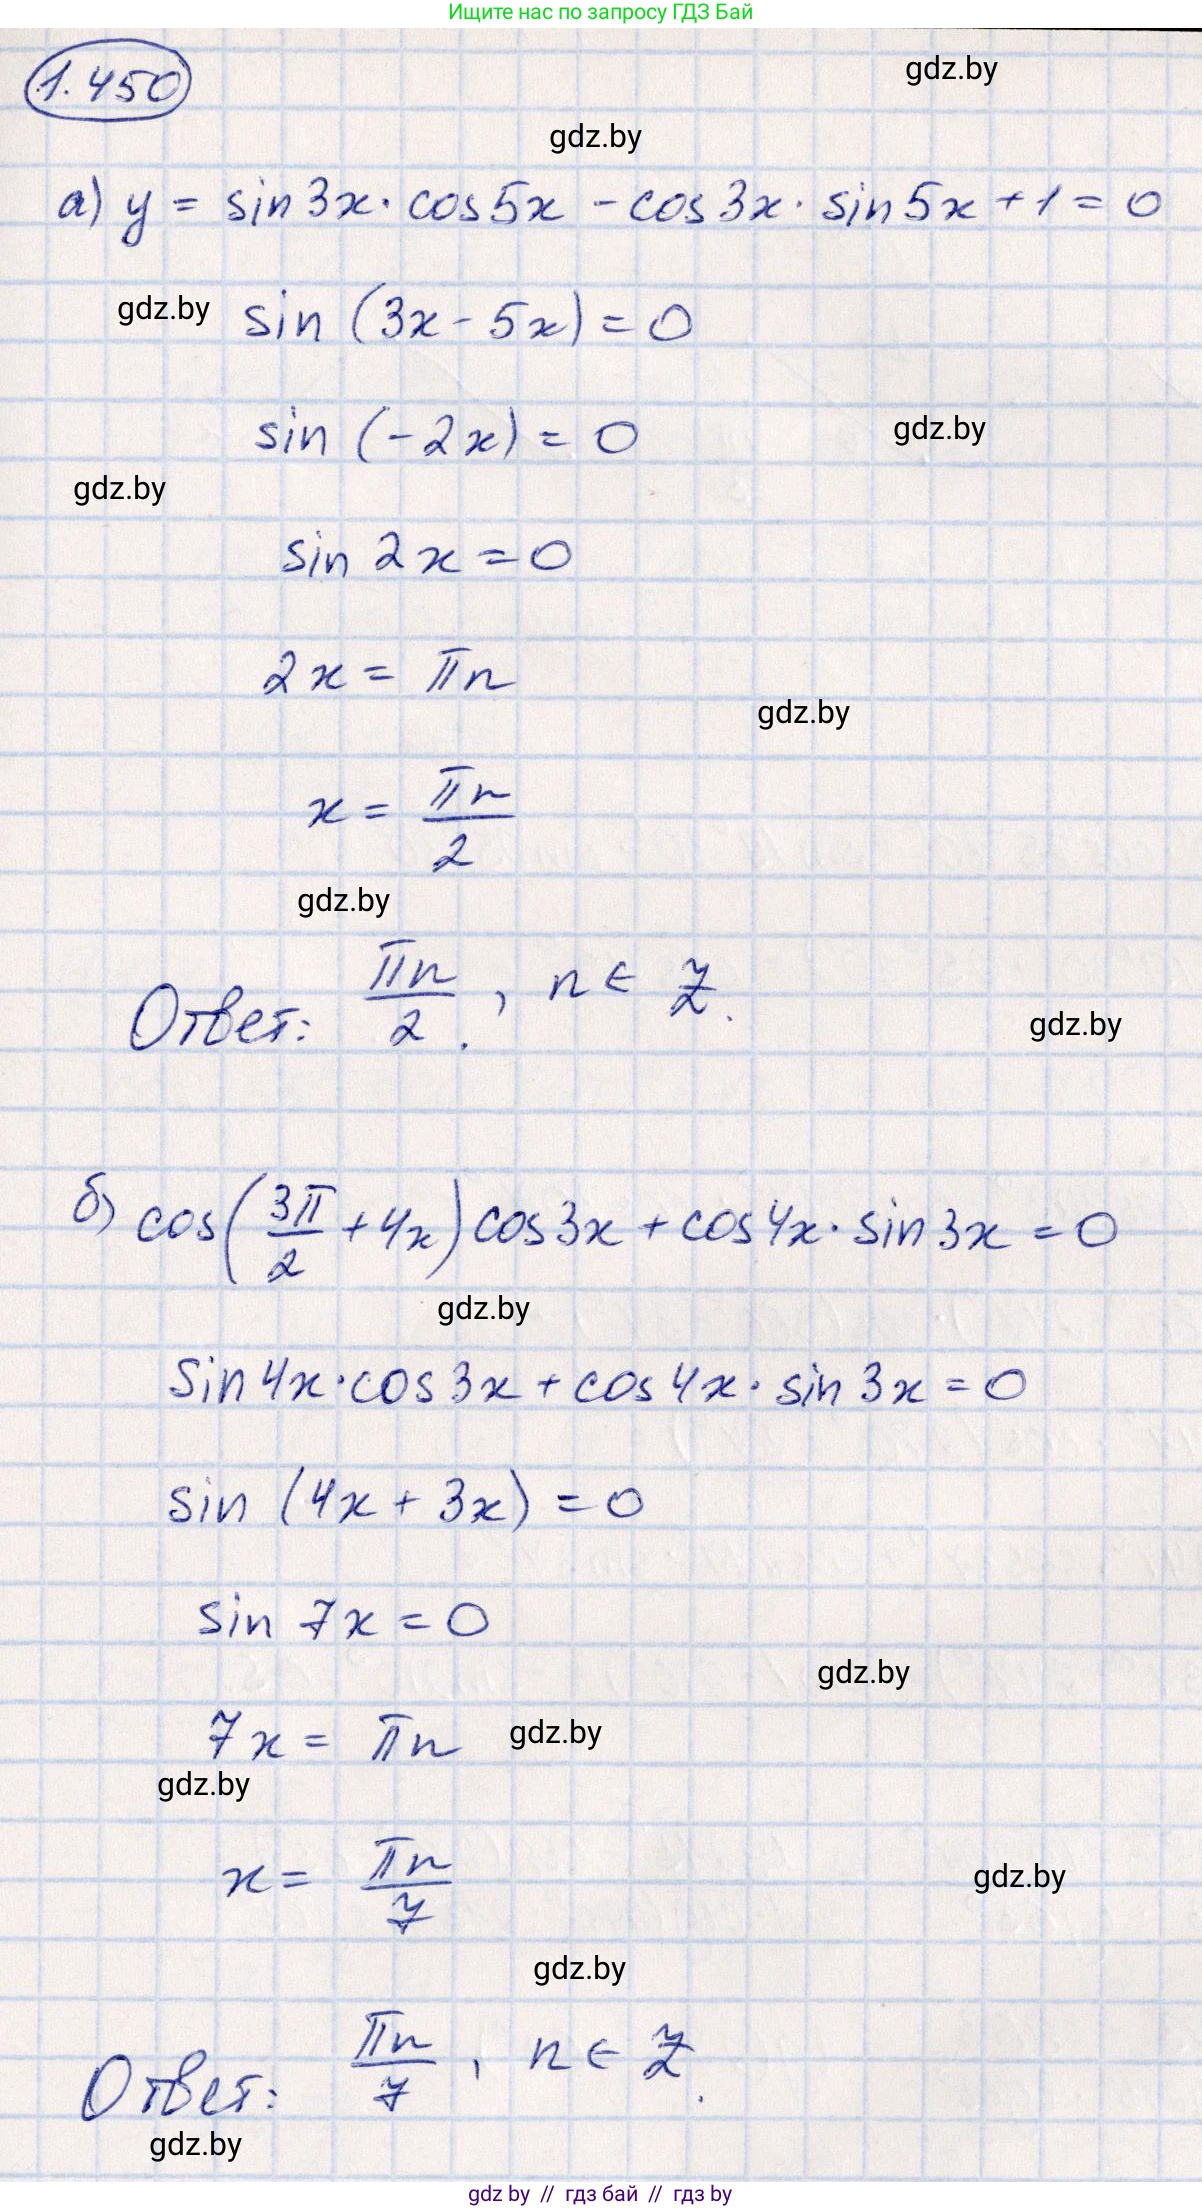 Ищите нас по запросу ГДЗ Бай
1.450
gdz.by
gdz.by
а) y = sin3x · cos5x - cos3x · sin5x + 1 = 0
gdz.by
sin (3x - 5x) = 0
sin (-2x) = 0
gdz.by
gdz.by
sin 2x = 0
2x = πn
gdz.by
x = πn/2
gdz.by
Ответ: πn/2, n ∈ Z.
gdz.by
б) cos(3π/2 + 4x) cos3x + cos4x · sin3x = 0
gdz.by
sin4x · cos3x + cos4x · sin3x = 0
sin (4x + 3x) = 0
sin 7x = 0
gdz.by
7x = πn
gdz.by
gdz.by
x = πn/7
gdz.by
gdz.by
Ответ: πn/7, n ∈ Z.
gdz.by
gdz by // гдз бай // гдз by